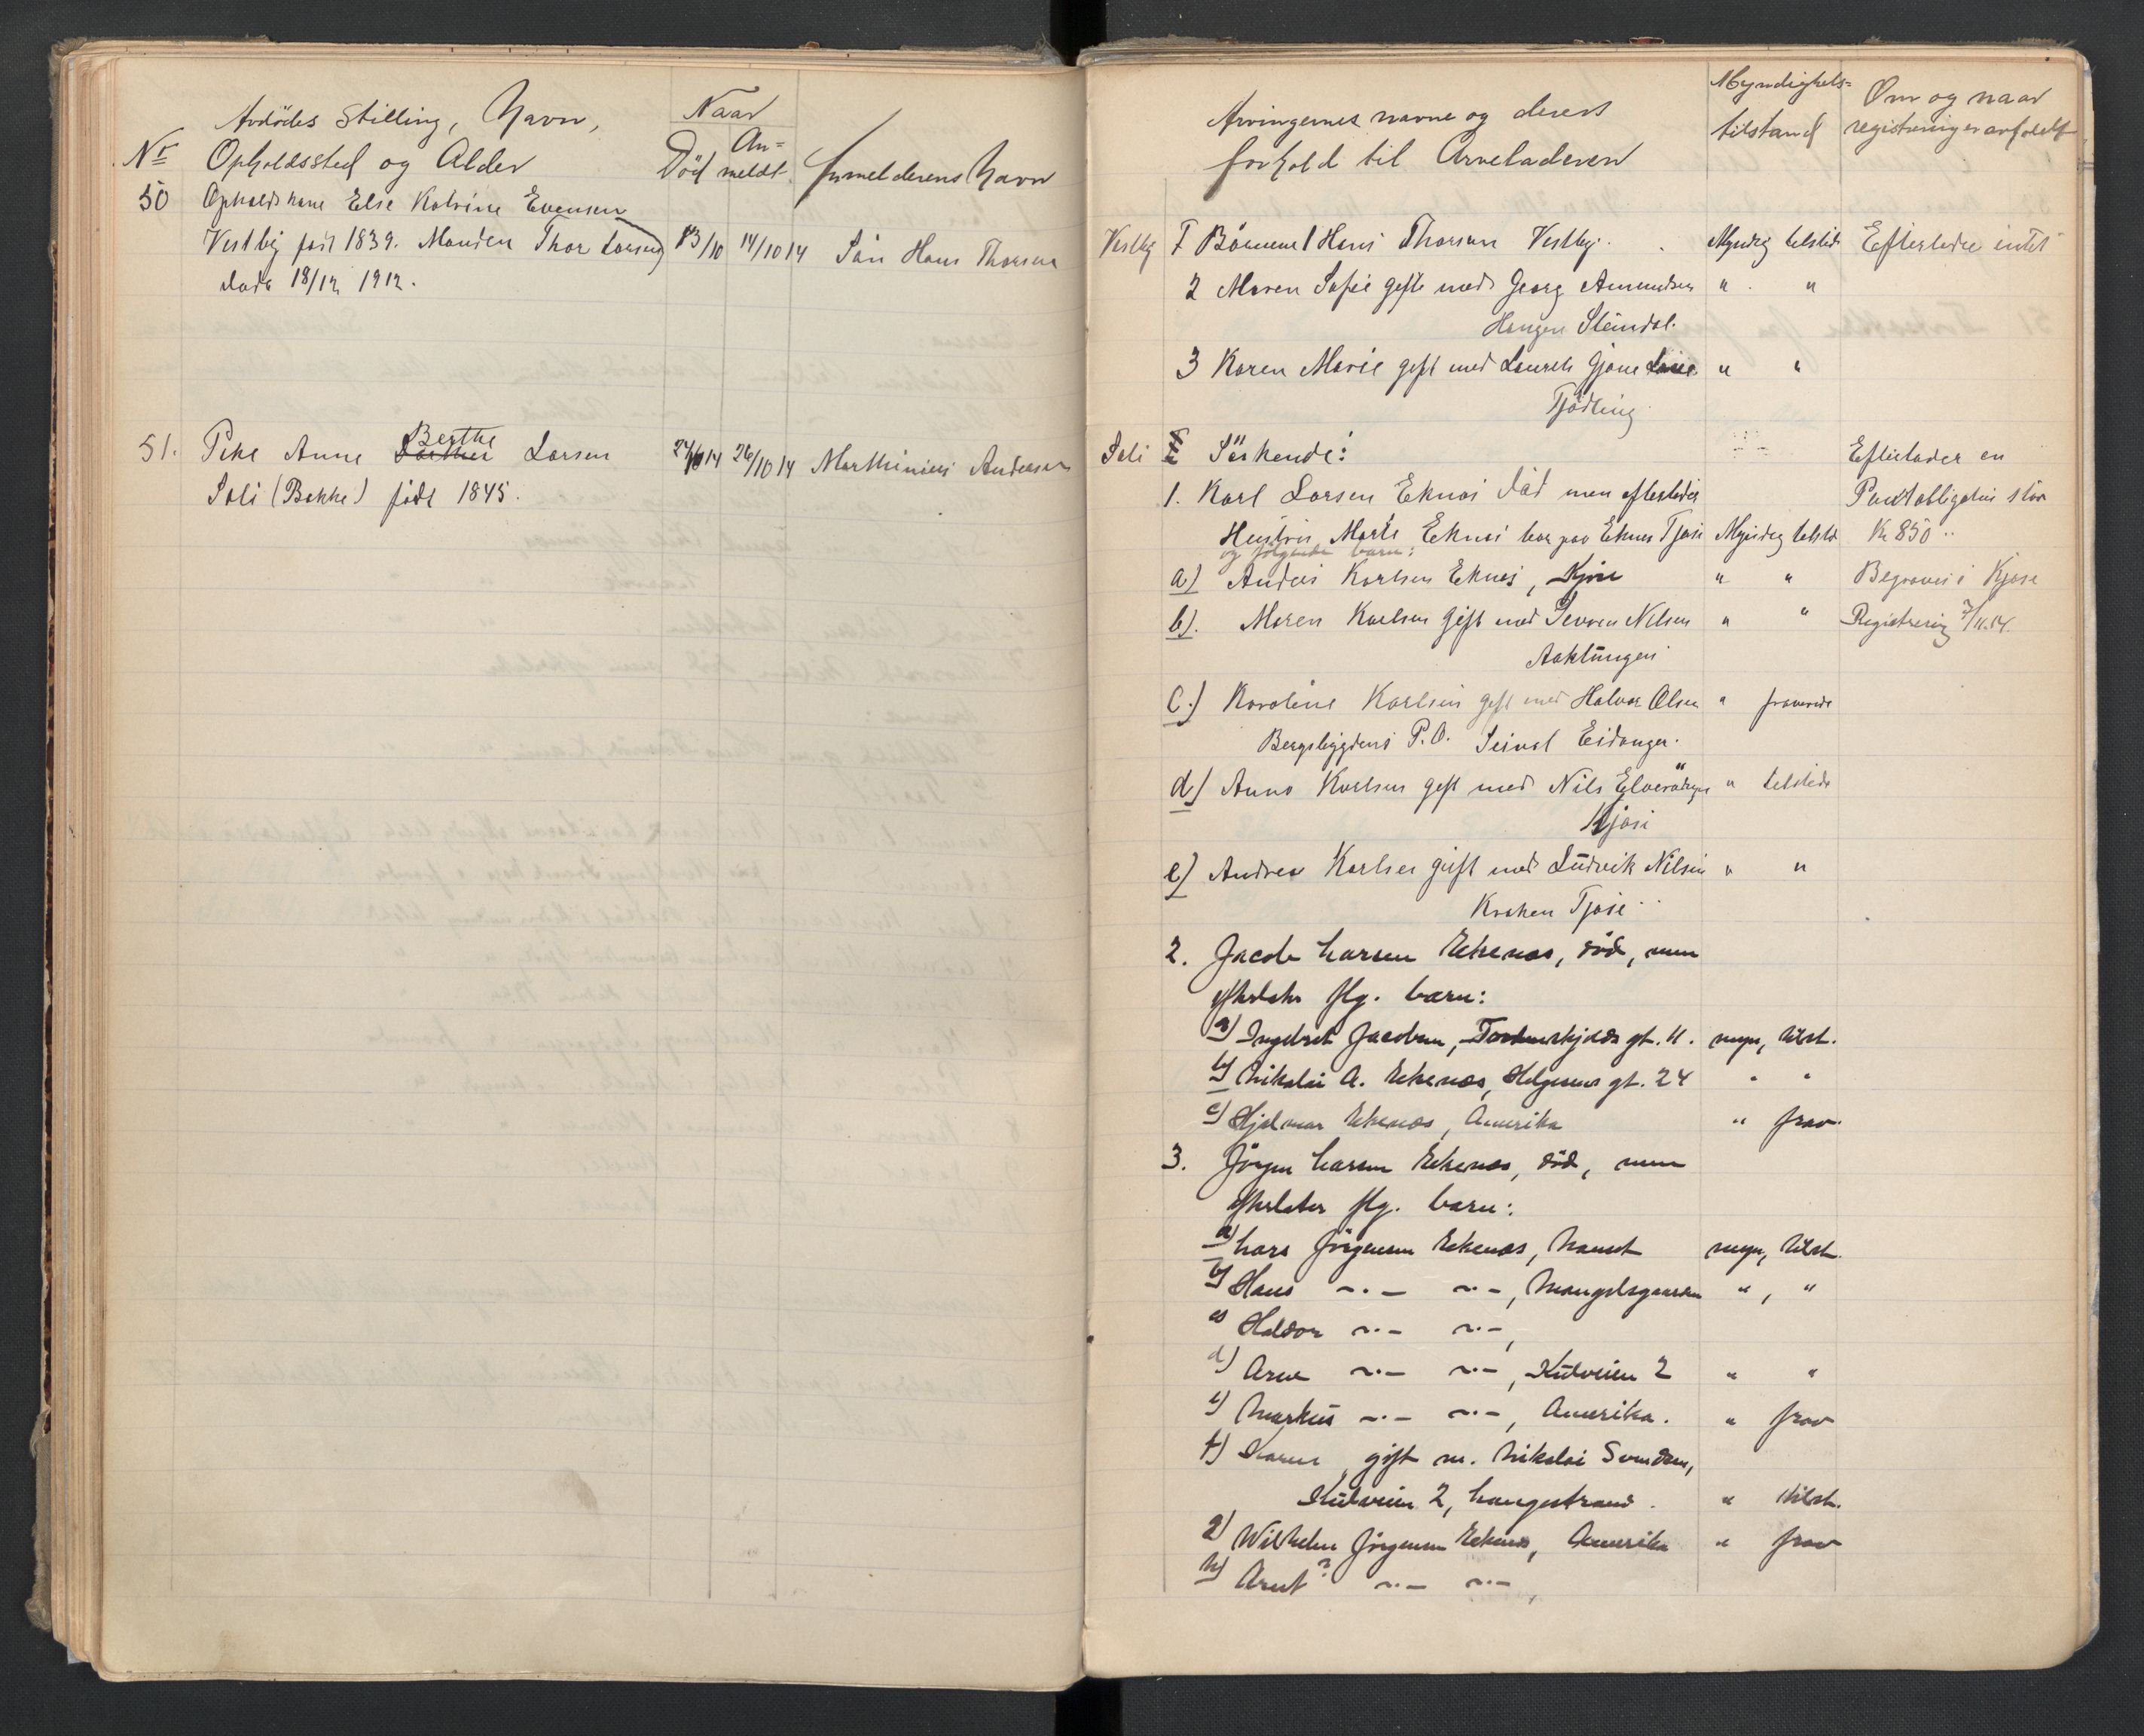 Avdödes Stilling, Navn,
Nr Opholdssted og Alder
Naar
Död An=meldt
Anmelderens Navn
50 Opholdskone Else Katrine Evensen
Vestby født 1839. Manden Thor Larsen
døde 18/12 1912.
13/10 14/10 14 Søn Hans Thorsen
51. Pike Anne Berthe Larsen
Soli (Bakke) født 1845.
24/10 14 26/10 14 Marthinius Andersen
Arvingernes navne og deres
forhold til Arveladeren
Myndighets=
tilstand
Om og naar
registrering er avholdt
Vestby Børnene 1 Hans Thorsen Vestby. Myndig tilstede Efterlader intet
2 Maren Sofie gift med Georg Amundsen " "
Haugen Steindal.
3 Karen Marie gift med Laurets Gjone " "
Tjødling
Soli Søskende: Efterlader en
1. Karl Larsen Eknes død men efterlader Pantobligation stor
Hustru Marte Eknes bor paa Eknes Tjose Myndig tilstede Kr 850
og følgende barn:
a) Anders Karlsen Eknes, Kjose " " Begraves i Kjose
b). Maren Karlsen gift med Nilsen " " Registrering 7/11.14.
Aaklungen
c.) Karoline Karlsen gift med Halvor Olsen " fraværende
Bergsbygdens P.O. Eidanger.
d) Anna Karlsen gift med Nils " tilstede
Kjose
e) Andrea Karlsen gift med Ludvik Nilsen " "
Kroken Tjose
2. Jacob Larsen Ekenes, död, men
efterlater flg. barn:
a) Ingebret Jacobsen, Tordenskjolds gt. 11. myn, tilst.
b) Nikolai A. Ekenes, Helgesens gt. 24 " "
c) Hjalmar Ekenes, Amerika " frav.
3. Jörgen Larsen Ekenes, död, men
efterlater flg. barn:
a) Lars Jörgensen Ekenes, Nanset myn, tilst.
b) Hans -"- -"-, Mangelsgaarden ", "
c) Haldor -"- -"-,
d) Arne -"- -"-, Kulveien 2 " "
e) Markus -"- -"-, Amerika. " frav
f) Karen, gift m. Nikolai Svendsen,
Kulveien 2, Langestrand. " tilst.
g) Wilhelm Jörgensen Ekenes, Amerika " frav
h) Arnt? -"- -"-,